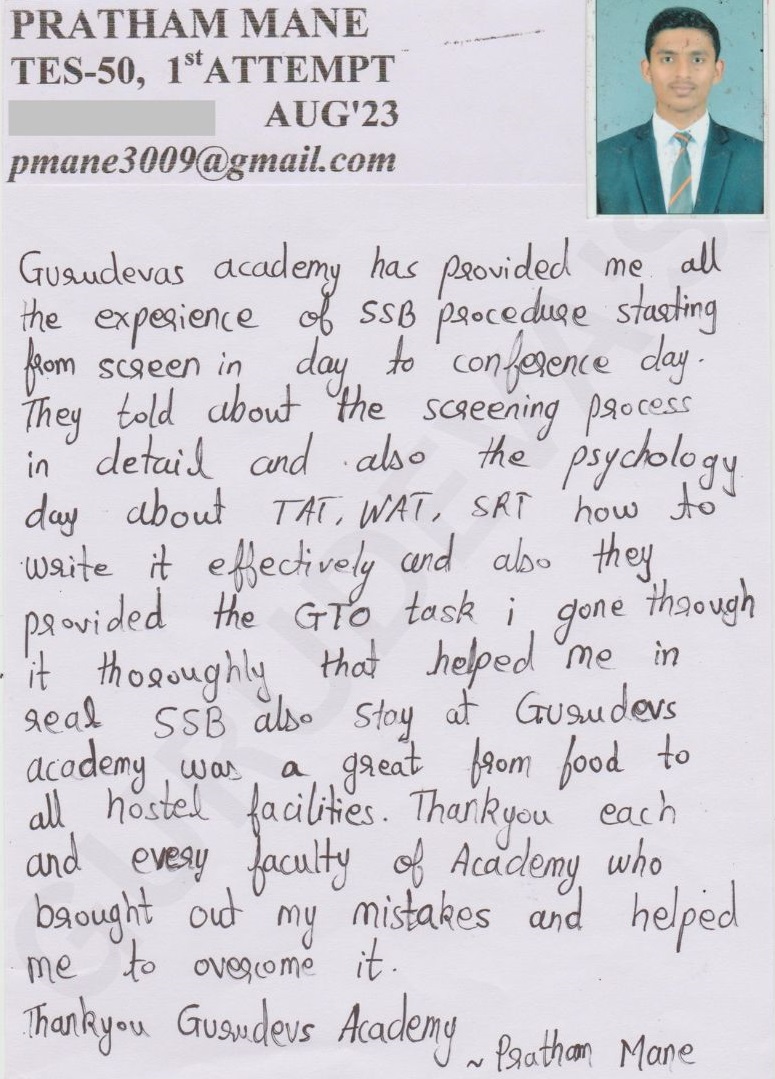 PRATHAM MANE
TES-50, 1st ATTEMPT
AUG'23
pmane3009@gmail.com
Gurudevas academy has provided me all
the experience of SSB procedure starting
from screen in day to conference day.
They told about the screening process
in detail and also the psychology
day about TAT, WAT, SRT how to
write it effectively and also they
provided the GTO task i gone through
it thoroughly that helped me in
real SSB also stay at Gurudevs
academy was a great from food to
all hostel facilities. Thankyou each
and every faculty of Academy who
brought out my mistakes and helped
me to overcome it.
Thankyou Gurudevs Academy
~ Pratham Mane
GURUDEVA'S